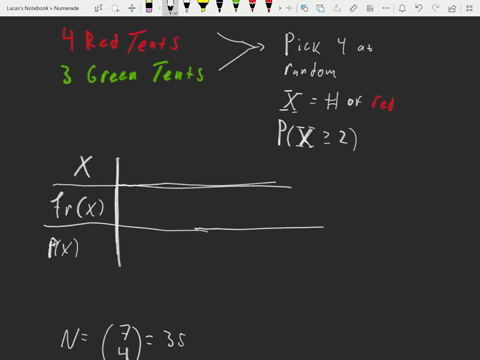 Lucas's Notebook • Numerade
4 Red Tents
3 Green Tents
Pick 4 at
random
X = # of red
P(X ≥ 2)
X
fr(x)
P(x)
N = (7 4) = 35